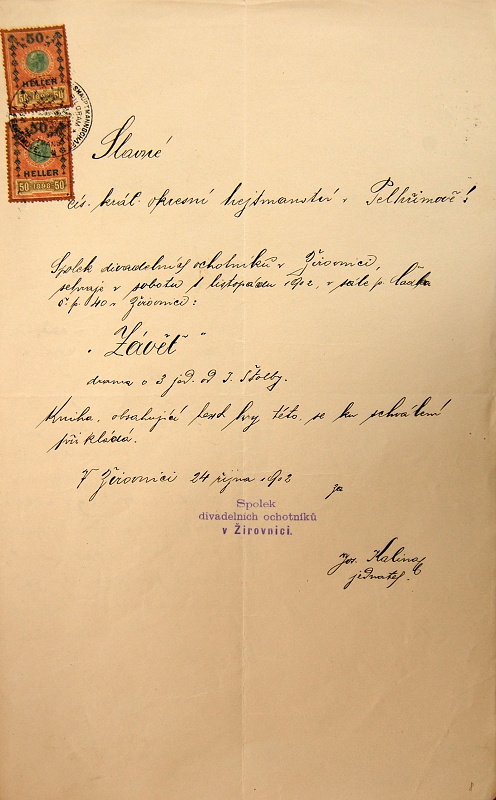 50
HELLER
50 1898 50
50
HELLER
50 1898 50
Slavné
cís. král. okresní hejtmanství v Pelhřimově!
Spolek divadelních ochotníků v Žirovnici,
sehraje v sobotu 1 listopadu 1902, v sále p. Čadka
č. p. 40 v Žirovnici:
„Závěť“
drama o 3 jed. od J. Štolby.
Kniha, obsahující text hry této, se ku schválení
přikládá.
V Žirovnici 24 října 1902
za
Spolek
divadelních ochotníků
v Žirovnici.
Jos. Kalina
jednatel.